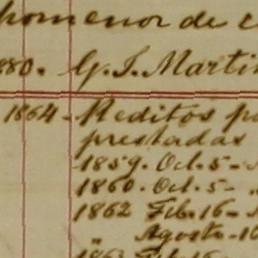 pomenor de c
880. G. I. Martin
1864 - Reditos po
prestadas
1859. Oct. 5 -
1860. Oct. 5 -
1862 Feb. 16 -
" Agosto - 10
1863 Feb. 16 -